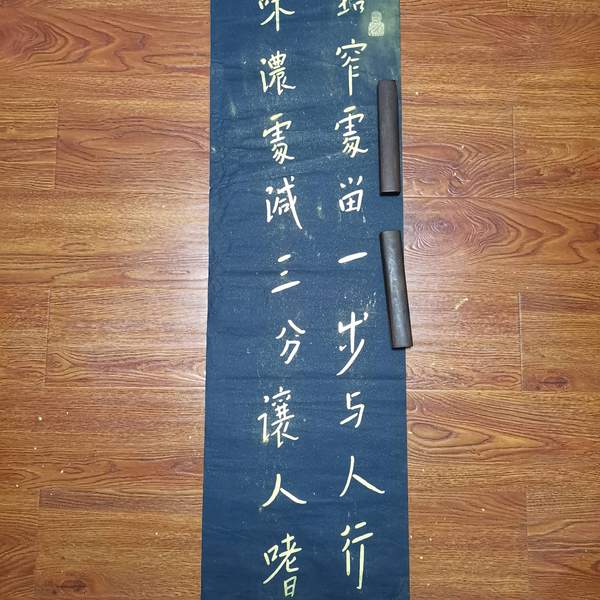 路窄處留一步与人行
味濃處減三分讓人嗜